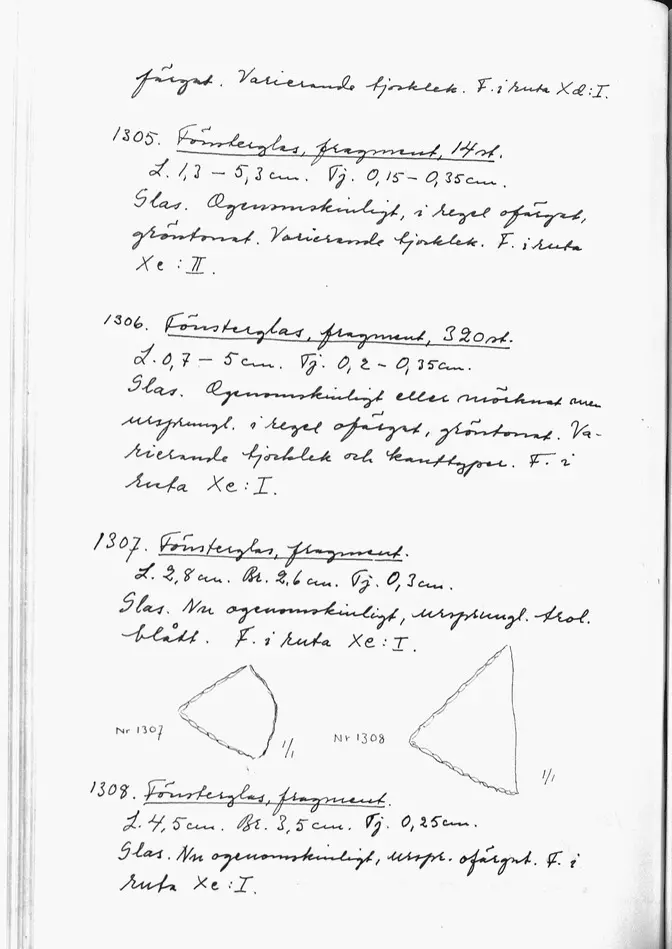 färgat. Varierande tjocklek. F. i ruta Xd:I.
1305. Fönsterglas, fragment, 14 st.
L. 1,3 – 5,3 cm. Tj. 0,15 – 0,35 cm.
Glas. Ogenomskinligt, i regel ofärgat,
gröntonat. Varierande tjocklek. F. i ruta
Xe : II.
1306. Fönsterglas, fragment, 320 st.
L. 0,7 – 5 cm. Tj. 0,2 – 0,35 cm.
Glas. Ogenomskinligt eller mörknat men
ursprungl. i regel ofärgat, gröntonat. Va-
rierande tjocklek och kanttyper. F. i
ruta Xe : I.
1307. Fönsterglas, fragment.
L. 2,8 cm. Br. 2,6 cm. Tj. 0,3 cm.
Glas. Nu ogenomskinligt, ursprungl. trol.
blått. F. i ruta Xe : I.
Nr 1307
1/1
Nr 1308
1/1
1308. Fönsterglas, fragment.
L. 4,5 cm. Br. 3,5 cm. Tj. 0,25 cm.
Glas. Nu ogenomskinligt, urspr. ofärgat. F. i
ruta Xe : I.